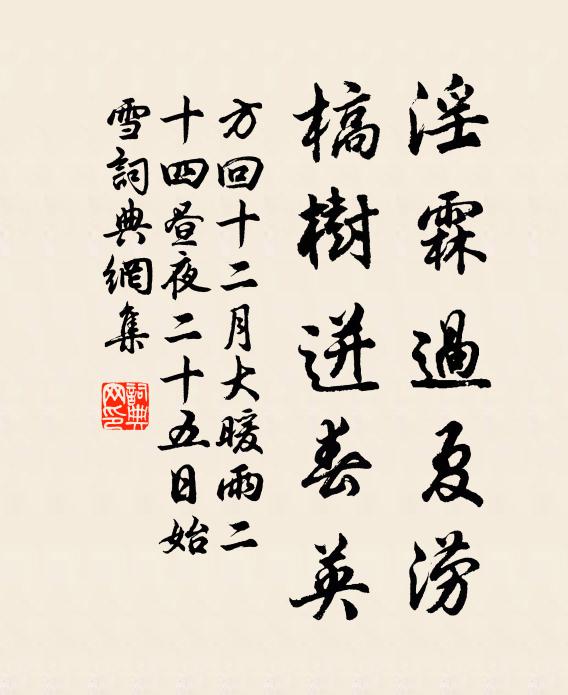 淫霖過夏澇
槁樹迸春英
方回十二月大暖雨二
十四昼夜二十五日始
雪詞典網集
詞典網印